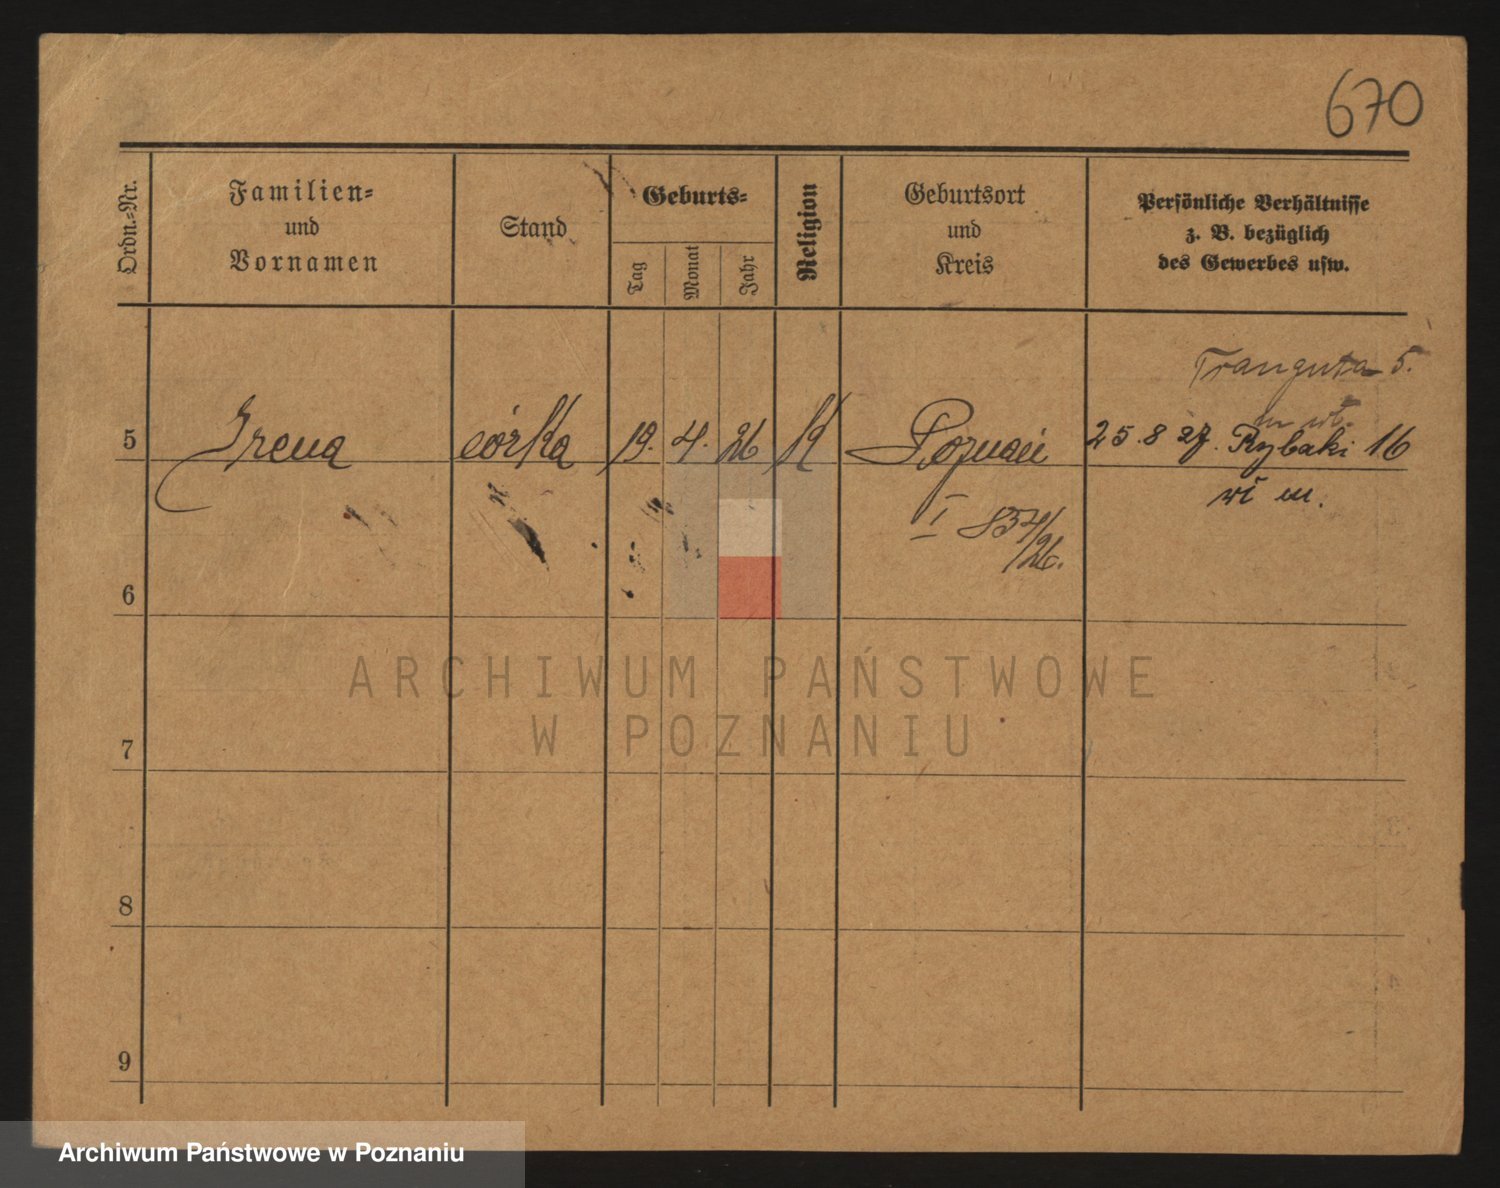 670
Ordn.=Nr.
Familien=
und
Vornamen
Stand
Geburts=
Tag
Monat
Jahr
Religion
Geburtsort
und
Kreis
Persönliche Verhältnisse
z. B. bezüglich
des Gewerbes usw.
5.
5 Irena córka 19. 4. 26 K Poznań 25.8 27. Rybaki 16
I 854/26.
6
ARCHIWUM PAŃSTWOWE
W POZNANIU
7
8
9
Archiwum Państwowe w Poznaniu